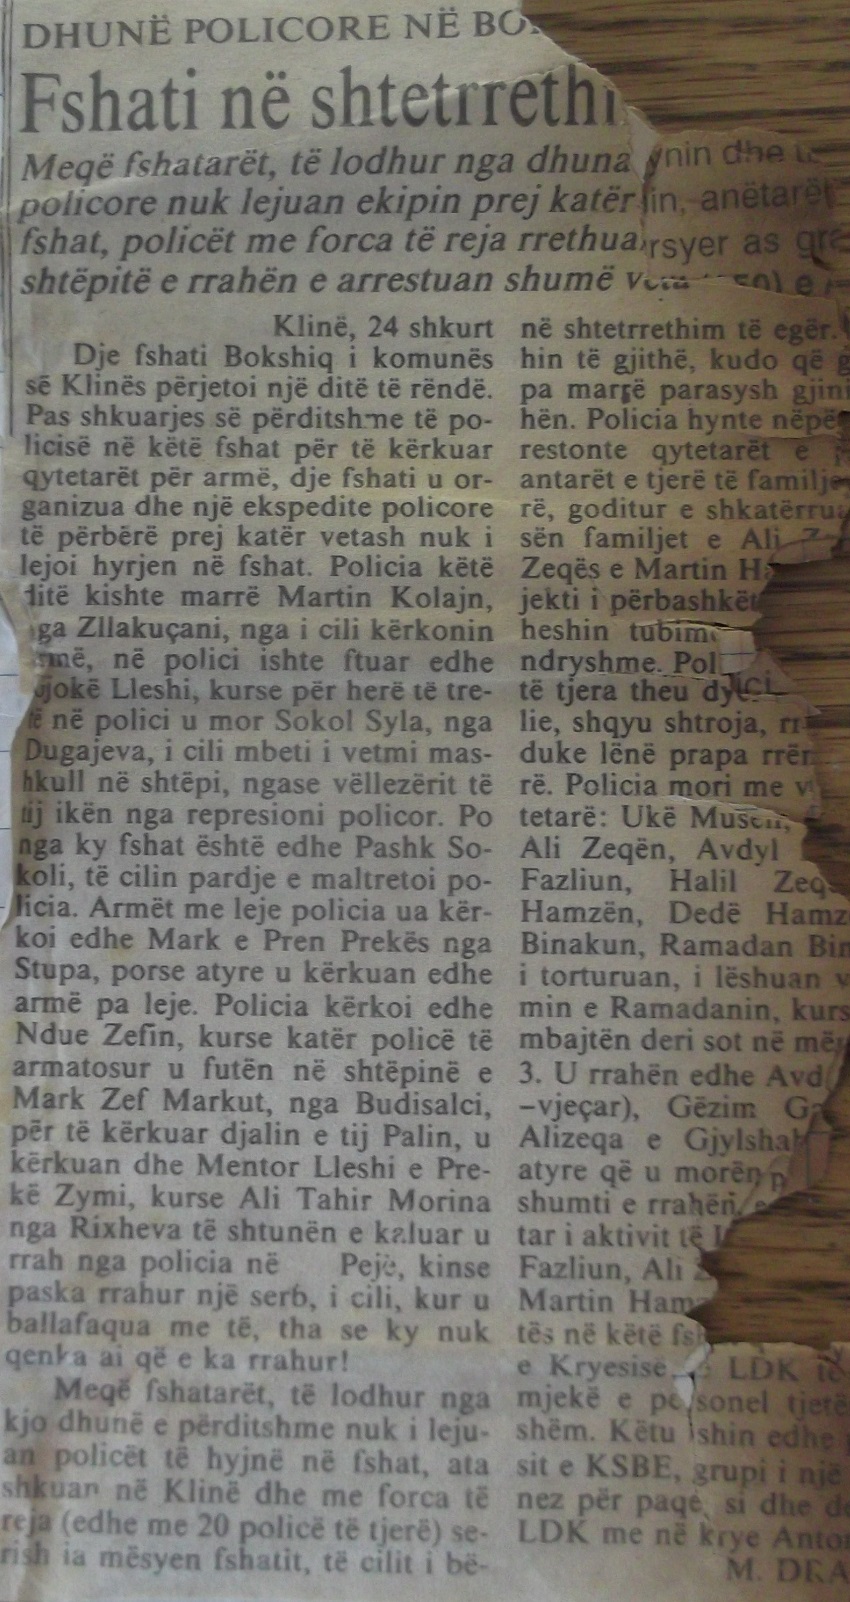 DHUNË POLICORE NË
Fshati në
Meqë fshatarët, të lodhur nga dhuna
policore nuk lejuan ekipin prej katër
fshat, policët me forca të reja
shtëpitë e rrahën e arrestuan shumë
Klinë, 24 shkurt
Dje fshati Bokshiq i komunës
së Klinës përjetoi një ditë të rëndë.
Pas shkuarjes së përditshme të po-
licisë në këtë fshat për të kërkuar
qytetarët për armë, dje fshati u or-
ganizua dhe një ekspedite policore
të përbërë prej katër vetash nuk i
lejoi hyrjen në fshat. Policia këtë
kishte marrë Martin Kolajn,
Zllakuçani, nga i cili kërkonin
në polici ishte ftuar edhe
Lleshi, kurse për herë të tre-
në polici u mor Sokol Syla, nga
Dugajeva, i cili mbeti i vetmi mas-
hkull në shtëpi, ngase vëllezërit të
tij ikën nga represioni policor. Po
nga ky fshat është edhe Pashk So-
koli, të cilin pardje e maltretoi po-
licia. Armët me leje policia ua kër-
koi edhe Mark e Pren Prekës nga
Stupa, porse atyre u kërkuan edhe
armë pa leje. Policia kërkoi edhe
Ndue Zefin, kurse katër policë të
armatosur u futën në shtëpinë e
Mark Zef Markut, nga Budisalci,
për të kërkuar djalin e tij Palin, u
kërkuan dhe Mentor Lleshi e Pre-
kë Zymi, kurse Ali Tahir Morina
nga Rixheva të shtunën e kaluar u
rrah nga policia në Pejë, kinse
paska rrahur një serb, i cili, kur u
ballafaqua me të, tha se ky nuk
qenka ai që e ka rrahur!
Meqë fshatarët, të lodhur nga
kjo dhunë e përditshme nuk i leju-
an policët të hyjnë në fshat, ata
shkuan në Klinë dhe me forca të
reja (edhe me 20 policë të tjerë) se-
rish ia mësyen fshatit, të cilit i bë-
në shtetrrethim të egër.
hin të gjithë, kudo që
pa marrë parasysh
hën. Policia hynte
restonte qytetarët e
antarët e tjerë të
rë, goditur e
sën familjet e Ali
Zeqës e Martin
jekti i
heshin
ndryshme.
të tjera theu
lie, shqyu shtroja,
duke lënë prapa
rë. Policia mori me
tetarë: Ukë
Ali Zeqën, Avdyl
Fazliun, Halil
Hamzën, Dedë
Binakun, Ramadan
i torturuan, i lëshuan
min e Ramadanin,
mbajtën deri sot në
3. U rrahën edhe
-vjeçar), Gëzim
Alizeqa e
atyre që u morën
shumti e rrahën,
tar i aktivit të
Fazliun, Ali
Martin
tës në këtë
e Kryesisë LDK
mjekë e personel
shëm. Këtu ishin edhe
sit e KSBE, grupi i një
nez për paqe, si dhe
LDK me në krye
M.